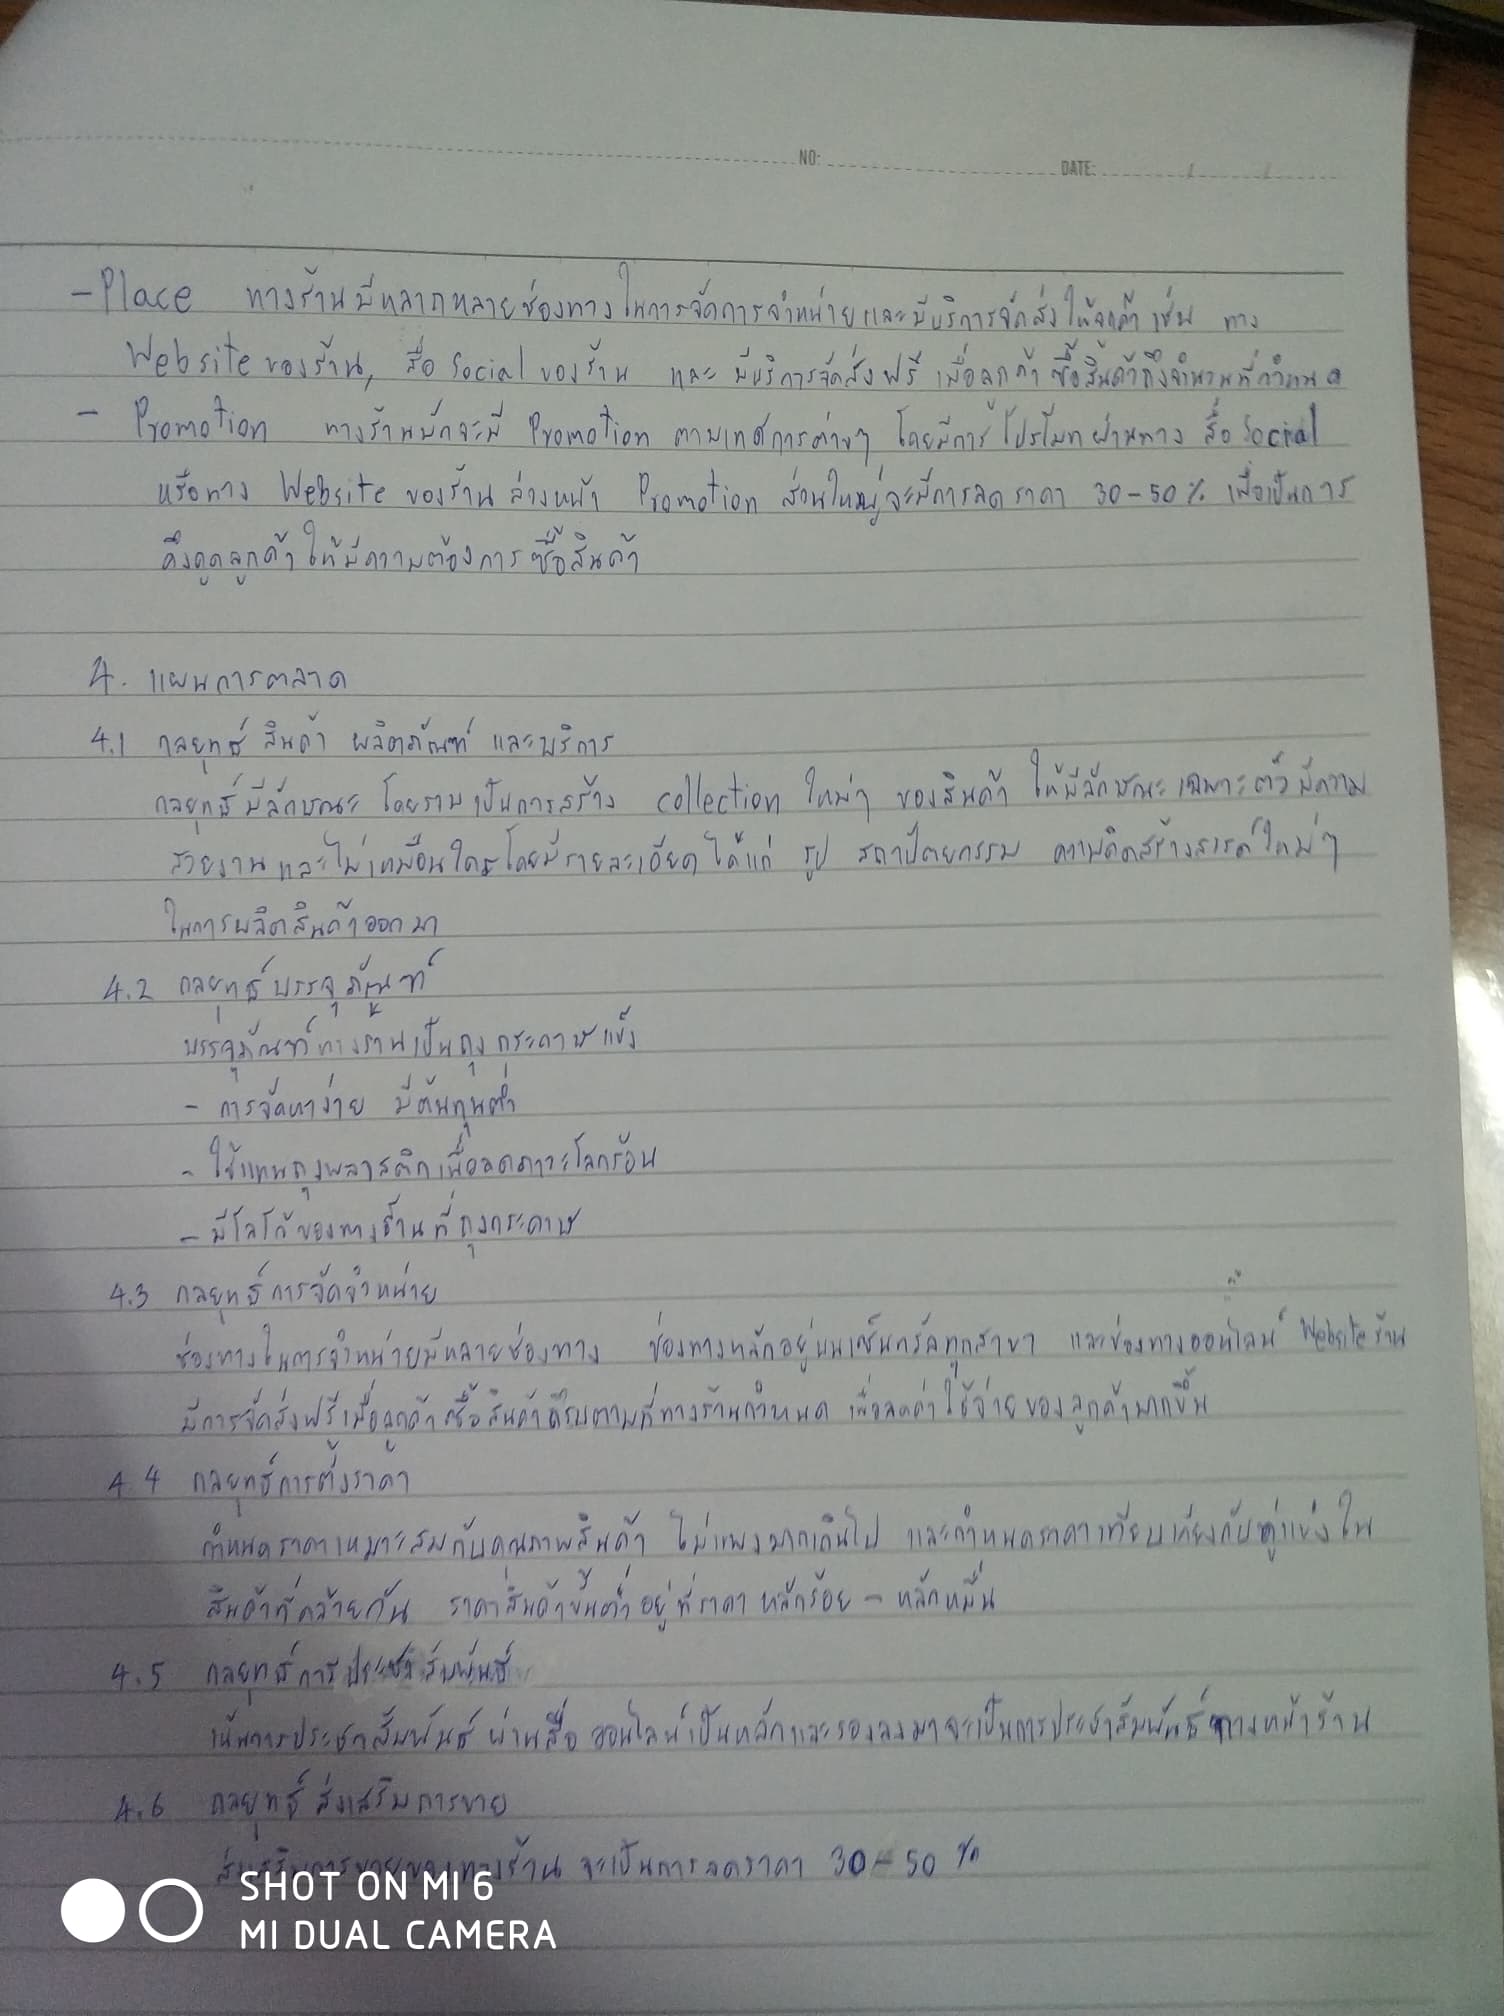 NO:
DATE: / /
- Place ทางร้านมีหลากหลายช่องทางในการจัดการจำหน่ายและมีบริการจัดส่งให้ลูกค้า เช่น ทาง
Website ของร้าน, สื่อ Social ของร้าน และ มีบริการจัดส่งฟรี เมื่อลูกค้า ซื้อสินค้าถึงจำนวนที่กำหนด
- Promotion ทางร้านมักจะมี Promotion ตามเทศการต่างๆ โดยมีการโปรโมทผ่านทาง สื่อ Social
หรือทาง Website ของร้าน ล่วงหน้า Promotion ส่วนใหญ่จะมีการลดราคา 30-50% เพื่อเป็นการ
ดึงดูดลูกค้าให้มีความต้องการซื้อสินค้า
4. แผนการตลาด
4.1 กลยุทธ์ สินค้า ผลิตภัณฑ์ และบริการ
กลยุทธ์มีลักษณะ โดยรวมเป็นการสร้าง collection ใหม่ๆ ของสินค้า ให้มีลักษณะเฉพาะตัว มีความ
สวยงามและไม่เหมือนใครโดยมีรายละเอียด ได้แก่ รูป สถาปัตยกรรม ความคิดสร้างสรรค์ใหม่ๆ
ในการผลิตสินค้าออกมา
4.2 กลยุทธ์บรรจุภัณฑ์
บรรจุภัณฑ์ทางร้านเป็นถุงกระดาษแข็ง
- การจัดหาง่าย มีต้นทุนต่ำ
- ใช้แทนถุงพลาสติกเพื่อลดภาวะโลกร้อน
- มีโลโก้ของทางร้านที่ถุงกระดาษ
4.3 กลยุทธ์การจัดจำหน่าย
ช่องทางในการจำหน่ายมีหลายช่องทาง ช่องทางหลักอยู่บนเซ็นทรัลทุกสาขา และช่องทางออนไลน์ Website ร้าน
มีการจัดส่งฟรีเมื่อลูกค้าซื้อสินค้าครบตามที่ทางร้านกำหนด เพื่อลดค่าใช้จ่ายของลูกค้ามากขึ้น
4.4 กลยุทธ์การตั้งราคา
กำหนดราคาเหมาะสมกับคุณภาพสินค้า ไม่แพงมากเกินไป และกำหนดราคาเทียบเคียงกับคู่แข่งใน
สินค้าที่คล้ายกัน ราคาสินค้าขั้นต่ำอยู่ที่ราคา หลักร้อย - หลักหมื่น
4.5 กลยุทธ์การประชาสัมพันธ์
เน้นการประชาสัมพันธ์ ผ่านสื่อ ออนไลน์เป็นหลักและรองลงมาจะเป็นการประชาสัมพันธ์ทางหน้าร้าน
4.6 กลยุทธ์ส่งเสริมการขาย
ส่งเสริมการขายของทางร้าน จะเป็นการลดราคา 30-50 %
SHOT ON MI 6
MI DUAL CAMERA